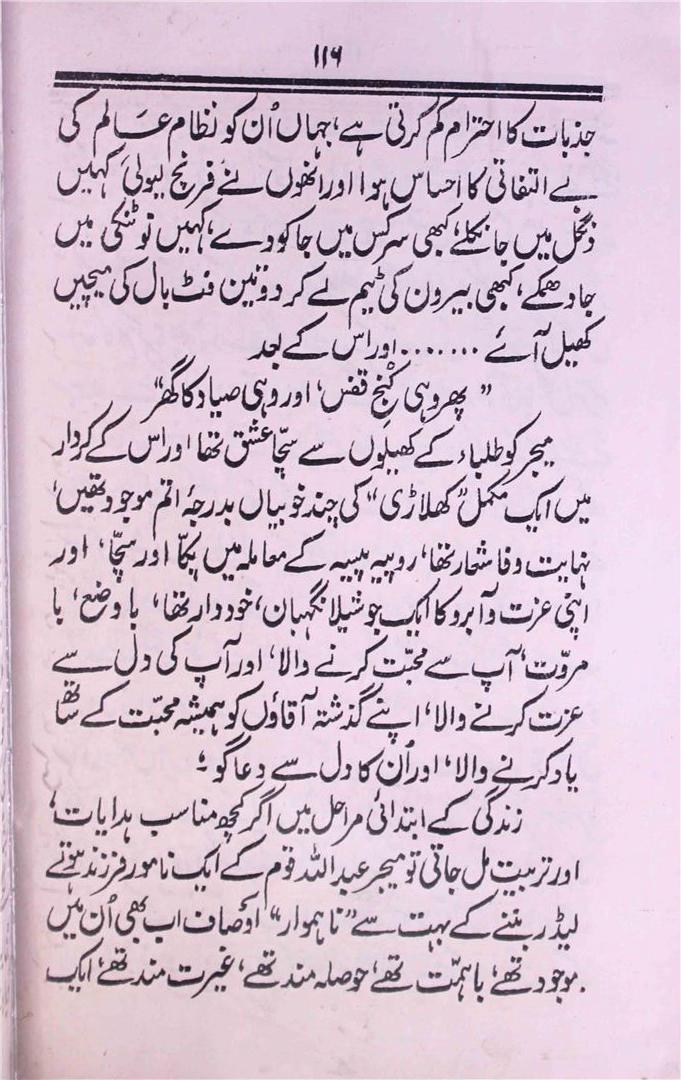 ۱۱۶
جذبات کا احترام کم کرتی ہے، جہاں اُن کو نظام عالم کی
بے التفاتی کا احساس ہوا اور انھوں نے فرنچ لیولی کہیں
دنگل میں جا نکلے، کبھی سرکس میں جا کودے، کہیں نوٹنکی میں
جا دھمکے، کبھی بیرون کی ٹیم لے کر دو تین فٹ بال کی میچیں
کھیل آئے ....... اور اس کے بعد
”پھر وہی کُنجِ قفس، اور وہی صیاد کا گھر“
میجر کو طلباء کے کھیلوں سے سچّا عشق تھا اور اس کے کردار
میں ایک مکمل ”کھلاڑی“ کی چند خوبیاں بدرجۂ اتم موجود تھیں،
نہایت وفا شعار تھا، روپیہ پیسہ کے معاملہ میں پکّا اور سچّا، اور
اپنی عزت و آبرو کا ایک جوشیلا نگہبان، خوددار تھا، با وضع، با
مروّت، آپ سے محبّت کرنے والا، اور آپ کی دل سے
عزت کرنے والا، اپنے گذشتہ آقاؤں کو ہمیشہ محبّت کے ساتھ
یاد کرنے والا، اور اُن کا دل سے دعا گو؛
زندگی کے ابتدائی مراحل میں اگر کچھ مناسب ہدایات،
اور تربیت مل جاتی تو میجر عبداللہ قوم کے ایک نامور فرزند ہوتے
لیڈر بننے کے بہت سے ”ناہموار“ اوصاف اب بھی اُن میں
موجود تھے، باہمّت تھے، حوصلہ مند تھے، غیرت مند تھے، ایک